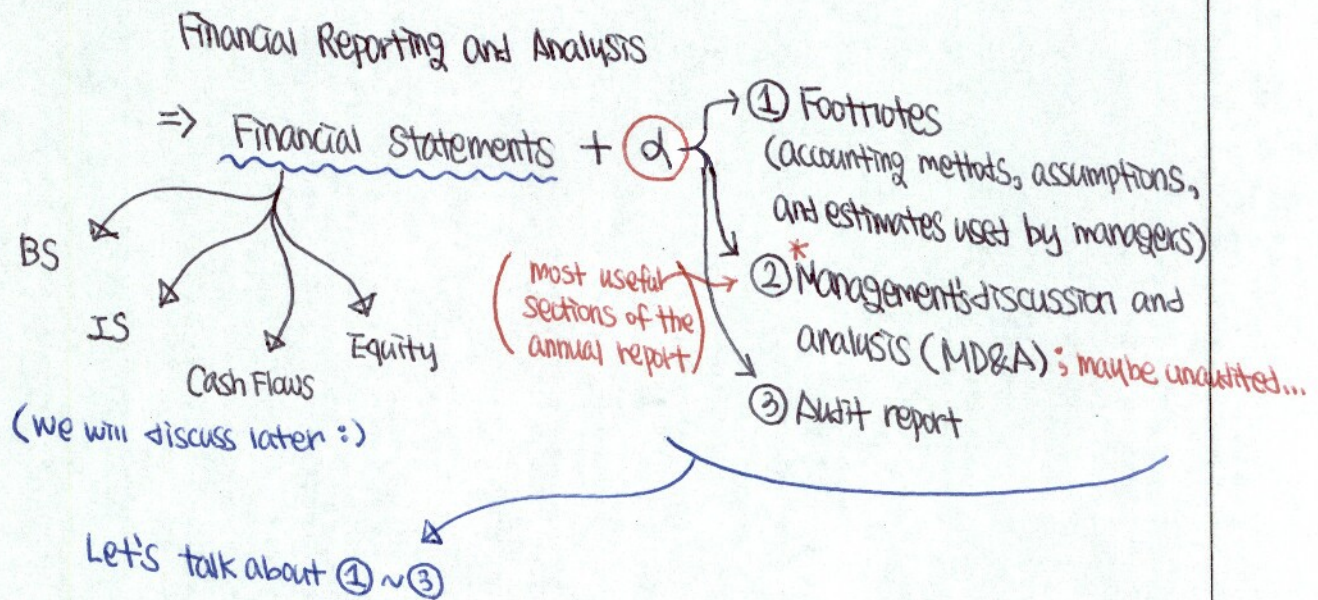 Financial Reporting and Analysis
=> Financial Statements + α
BS
IS
Cash Flows
Equity
(we will discuss later :)
① Footnotes
(accounting methods, assumptions,
and estimates used by managers)
(most useful
sections of the
annual report)
*
② Management's discussion and
analysis (MD&A) ; maybe unaudited...
③ Audit report
Let's talk about ① ~ ③